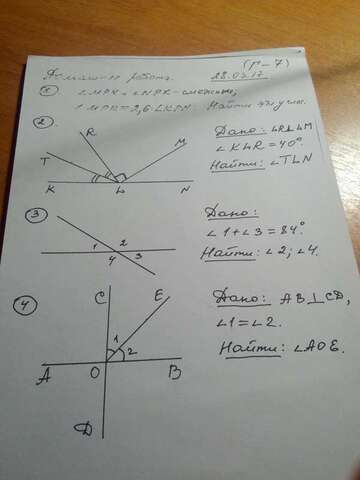 (Г-7)
Домаш-яя работа. 28.09.17
① ∠MPK и ∠NPK - смежные,
∠MPK = 2,6 ∠KPN. Найти эти углы.
② R M T K L N
Дано: LR⊥LM
∠KLR = 40°.
Найти: ∠TLN
③ 1 2 3 4
Дано:
∠1 + ∠3 = 84°.
Найти: ∠2; ∠4.
④ C E 1 2 A O B D
Дано: AB⊥CD,
∠1 = ∠2.
Найти: ∠AOE.